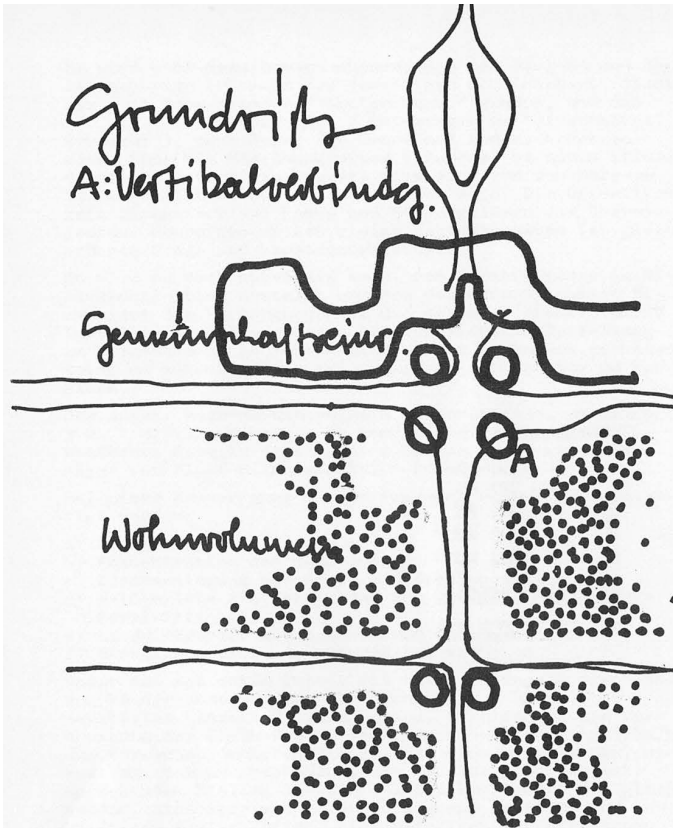 Grundriß
A: Vertikalverbindg.
Gemeinschaftseinr.
A
Wohnvolumen